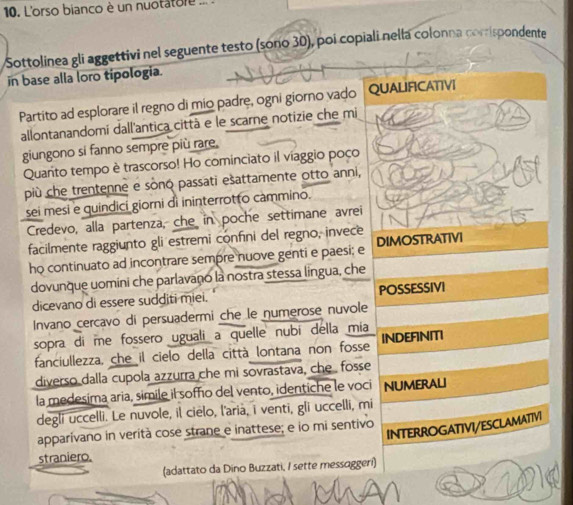 10. L'orso bianco è un nuotatore ...
Sottolinea gli aggettivi nel seguente testo (sono 30), poi copiali nella colonna corrispondente
in base alla loro tipologia.
Partito ad esplorare il regno di mio padre, ogni giorno vado
allontanandomi dall'antica città e le scarne notizie che mi
giungono si fanno sempre più rare.
Quanto tempo è trascorso! Ho cominciato il viaggio poco
più che trentenne e sono passati esattamente otto anni,
sei mesi e quindici giorni di ininterrotto cammino.
Credevo, alla partenza, che in poche settimane avrei
facilmente raggiunto gli estremi confini del regno, invece
ho continuato ad incontrare sempre nuove genti e paesi; e
dovunque uomini che parlavano la nostra stessa lingua, che
dicevano di essere sudditi miei.
Invano cercavo di persuadermi che le numerose nuvole
sopra di me fossero uguali a quelle nubi della mia
fanciullezza, che il cielo della città lontana non fosse
diverso dalla cupola azzurra che mi sovrastava, che fosse
la medesima aria, simile il soffio del vento, identiche le voci
degli uccelli. Le nuvole, il cielo, l'aria, i venti, gli uccelli, mi
apparivano in verità cose strane e inattese; e io mi sentivo
straniero.
(adattato da Dino Buzzati, I sette messaggeri)
QUALIFICATIVI
DIMOSTRATIVI
POSSESSIVI
INDEFINITI
NUMERALI
INTERROGATIVI/ESCLAMATIVI